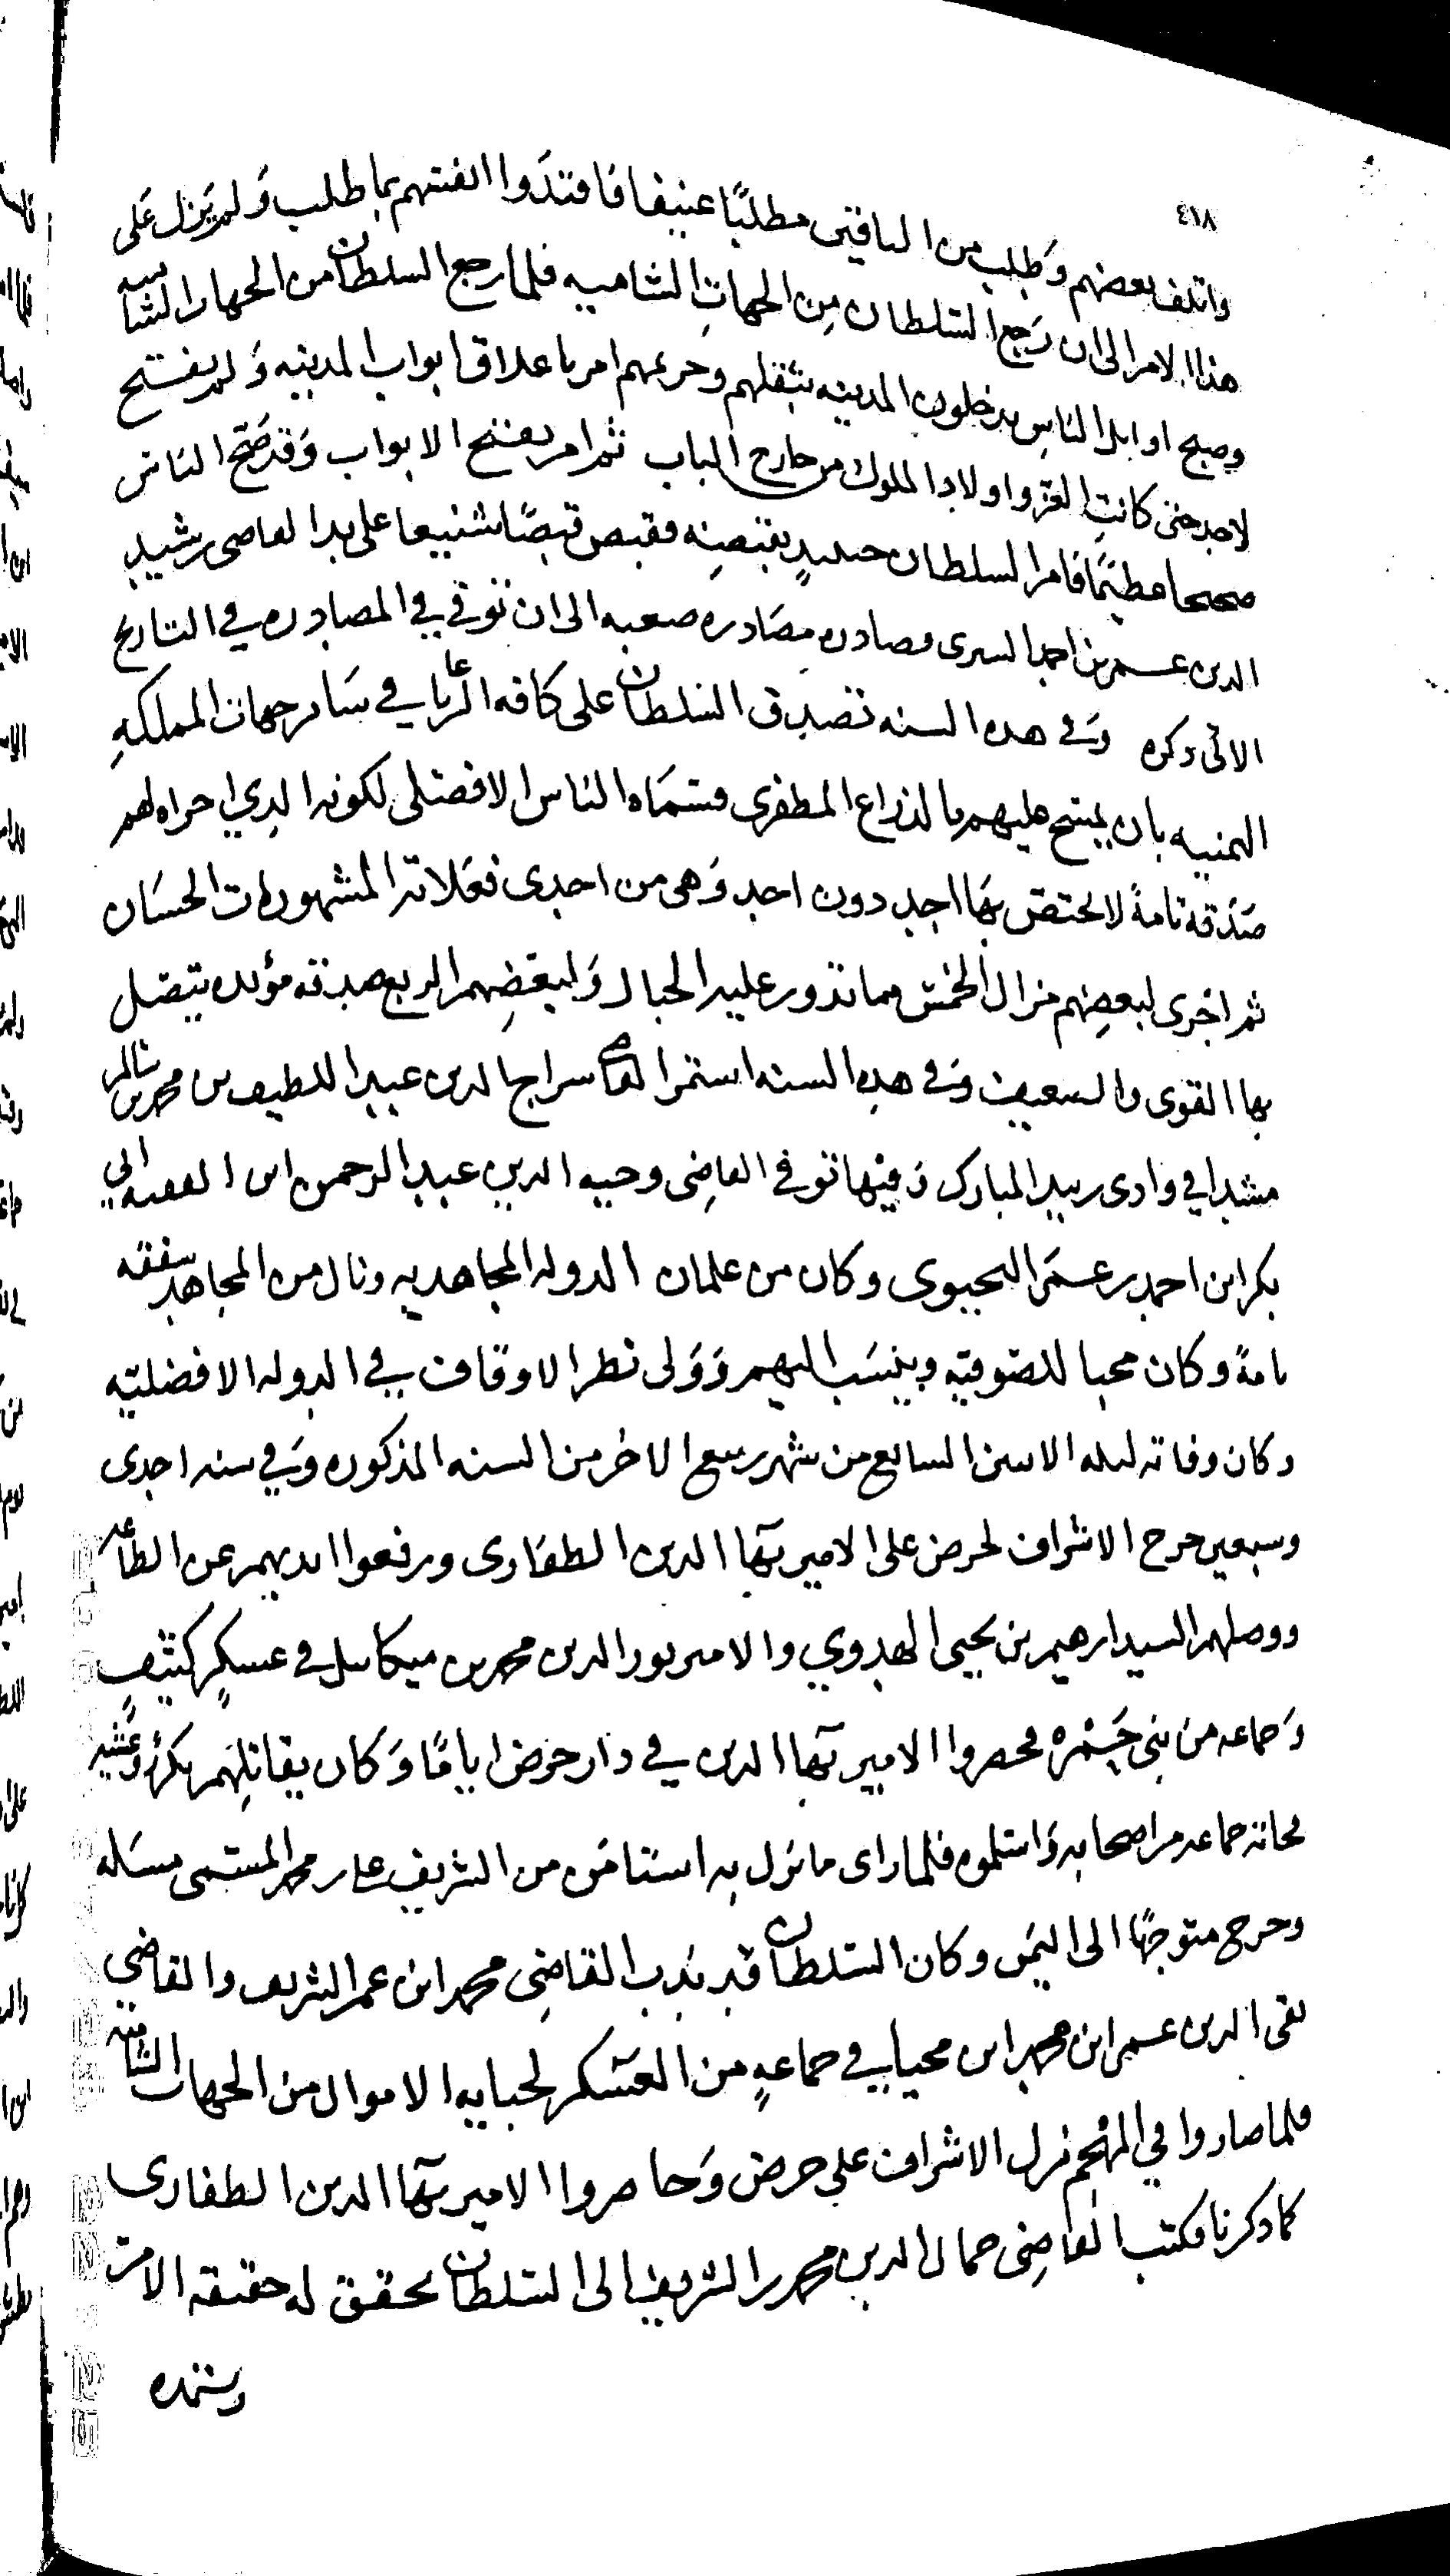 ٤١٨
واتلف بعضهم وطلب من الباقين مطلبًا عنيفا فافتدوا انفسهم بما طلب ولم يزل على
هذا الامر الى ان رجع السلطان من الجهات الشاميه فلما رجع السلطان من الجهات الشاميه
وصبح اوايل الناس يدخلون المدينه بثقلهم وحريمهم امر باغلاق ابواب المدينه ولم يفتح
لاحد حتى كانت الغز واولاد الملوك من خارج الباب ثم امر بفتح الابواب وقد ضج الناس
ضجيجا عظيمًا فامر السلطان حينيذٍ بقبضه فقبض قبضًا شنيعا على يد القاضى رشيد
الدين عمر بن احمد السيرى وصادره مصادره صعبه الى ان توفى في المصادره في التاريخ
الاتى ذكره وفى هذه السنه تصدق السلطان على كافه الرعايا في ساير جهات المملكه
اليمنيه بان يمسح عليهم بالذراع المظفرى وسماه الناس الافضلى لكونه الذي اجراه لهم
صدقه تامةً لا يختص بها احد دون احد وهى من احدى فعلاته المشهورات الحسان
ثم اجرى لبعضهم مزال الخمس مما تدور عليه الحبال ولبعضهم الربع صدقه مؤبده يتصل
بها القوى والضعيف وفى هذه السنه استمر القاضي سراج الدين عبد اللطيف بن محمد بن سالم
مشدا في وادى زبيد المبارك وفيها توفي القاضى وجيه الدين عبد الرحمن ابن الفقيه ابي
بكر ابن احمد بن عمر اليحيوى وكان من غلمان الدوله المجاهديه ونال من المجاهد شفقه
تامةً وكان محبا للصوفيه وينسب اليهم وولى نظر الاوقاف في الدوله الافضليه
وكان وفاته ليله الاثنين السابع من شهر ربيع الاخر من السنه المذكوره وفي سنه احدى
وسبعين خرج الاشراف لحرض على الامير بها الدين الظفارى ورفعوا ايديهم عن الطاعه
ووصلهم السيد ابرهيم بن يحيى الهدوي والامير نور الدين محمد بن ميكاييل في عسكرٍ كثيفٍ
وجماعه من بنى حمزه فحصروا الامير بها الدين في دار حرض ايامًا وكان يقاتلهم بكرةً وعشيه
فخانه جماعه من اصحابه واسلموه فلما راى ما نزل به استامن من الشريف على بن محمد المسمى مسله
وخرج متوجهًا الى اليمن وكان السلطان قد ندب القاضى محمد ابن عمر الشريف والقاضي
تقى الدين عمر ابن محمد ابن محيا في جماعهٍ من العسكر لجبايه الاموال من الجهات الشاميه
فلما صاروا في المهجم نزل الاشراف على حرض وحاصروا الامير بها الدين الظفارى
كما ذكرنا فكتب القاضى جمال الدين محمد بن الشريف الى السلطان يحقق له حقيقه الامر
ويستمده